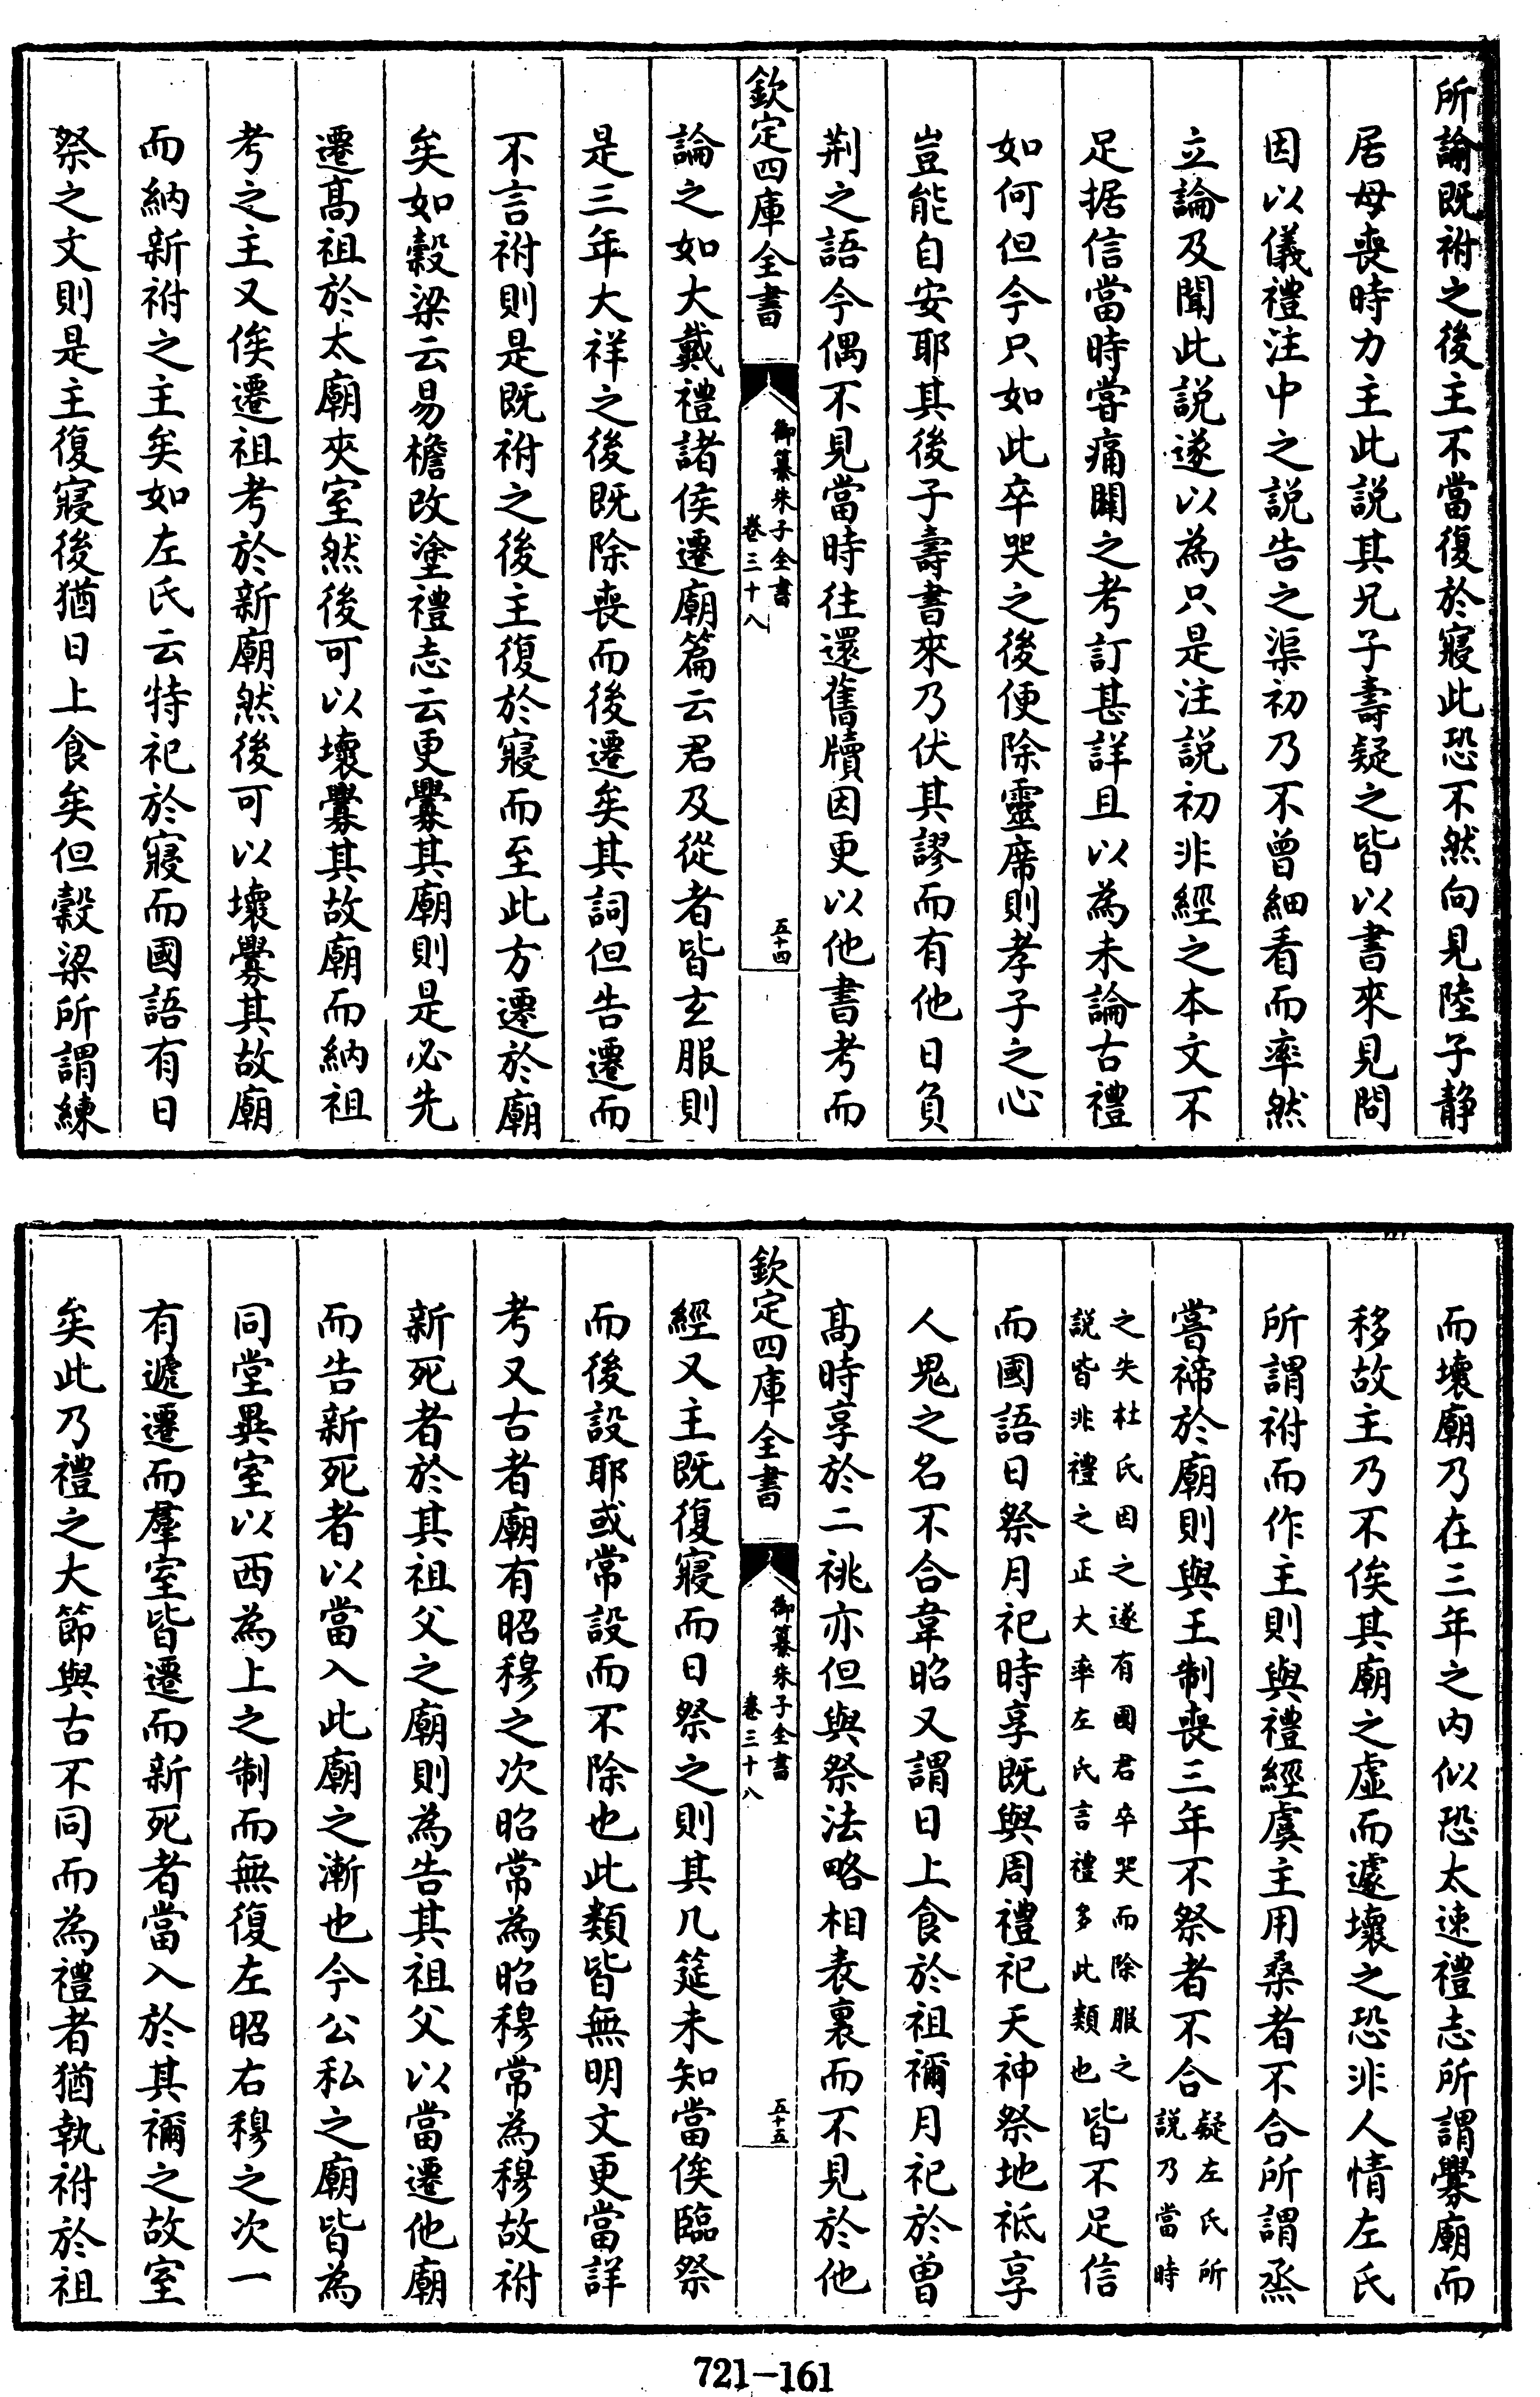 所諭既祔之後主不當復於寢此恐不然向見陸子静
居母喪時力主此說其兄子壽疑之皆以書來見問
因以儀禮注中之說告之渠初乃不曾細看而率然
立論及聞此說遂以為只是注說初非經之本文不
足据信當時嘗痛闢之考訂甚詳且以為未論古禮
如何但今只如此卒哭之後便除靈席則孝子之心
豈能自安耶其後子壽書來乃伏其謬而有他日負
荆之語今偶不見當時往還舊牘因更以他書考而
欽定四庫全書
御纂朱子全書
卷三十八
五十四
論之如大戴禮諸侯遷廟篇云君及從者皆玄服則
是三年大祥之後既除喪而後遷矣其詞但告遷而
不言祔則是既祔之後主復於寢而至此方遷於廟
矣如穀梁云易檐改塗禮志云更釁其廟則是必先
遷髙祖於太廟夾室然後可以壞釁其故廟而納祖
考之主又俟遷祖考於新廟然後可以壞釁其故廟
而納新祔之主矣如左氏云特祀於寢而國語有日
祭之文則是主復寢後猶日上食矣但穀梁所謂練
而壞廟乃在三年之內似恐太速禮志所謂釁廟而
移故主乃不俟其廟之虛而遽壞之恐非人情左氏
所謂祔而作主則與禮經虞主用桑者不合所謂烝
嘗禘於廟則與王制喪三年不祭者不合疑左氏所
說乃當時
之失杜氏因之遂有國君卒哭而除服之
說皆非禮之正大率左氏言禮多此類也皆不足信
而國語日祭月祀時享既與周禮祀天神祭地祇享
人鬼之名不合韋昭又謂日上食於祖禰月祀於曾
髙時享於二祧亦但與祭法略相表裏而不見於他
欽定四庫全書
御纂朱子全書
卷三十八
五十五
經又主既復寢而日祭之則其几筵未知當俟臨祭
而後設耶或常設而不除也此類皆無明文更當詳
考又古者廟有昭穆之次昭常為昭穆常為穆故祔
新死者於其祖父之廟則為告其祖父以當遷他廟
而告新死者以當入此廟之漸也今公私之廟皆為
同堂異室以西為上之制而無復左昭右穆之次一
有遞遷而羣室皆遷而新死者當入於其禰之故室
矣此乃禮之大節與古不同而為禮者猶執祔於祖
721-161